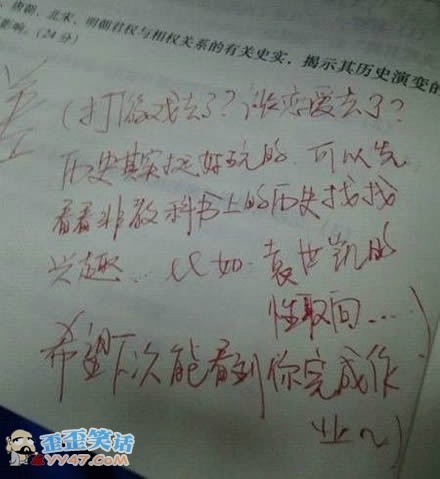 、唐朝、北宋、明朝君权与相权关系的有关史实，揭示其历史演变的
影响。(24分)
差
(打游戏去了?谈恋爱去了?
历史其实挺好玩的,可以先
看看非教科书上的历史找找
兴趣..比如:袁世凯的
性取向....
希望下次能看到你完成作
业~)
歪歪笑话
YY47.CoM